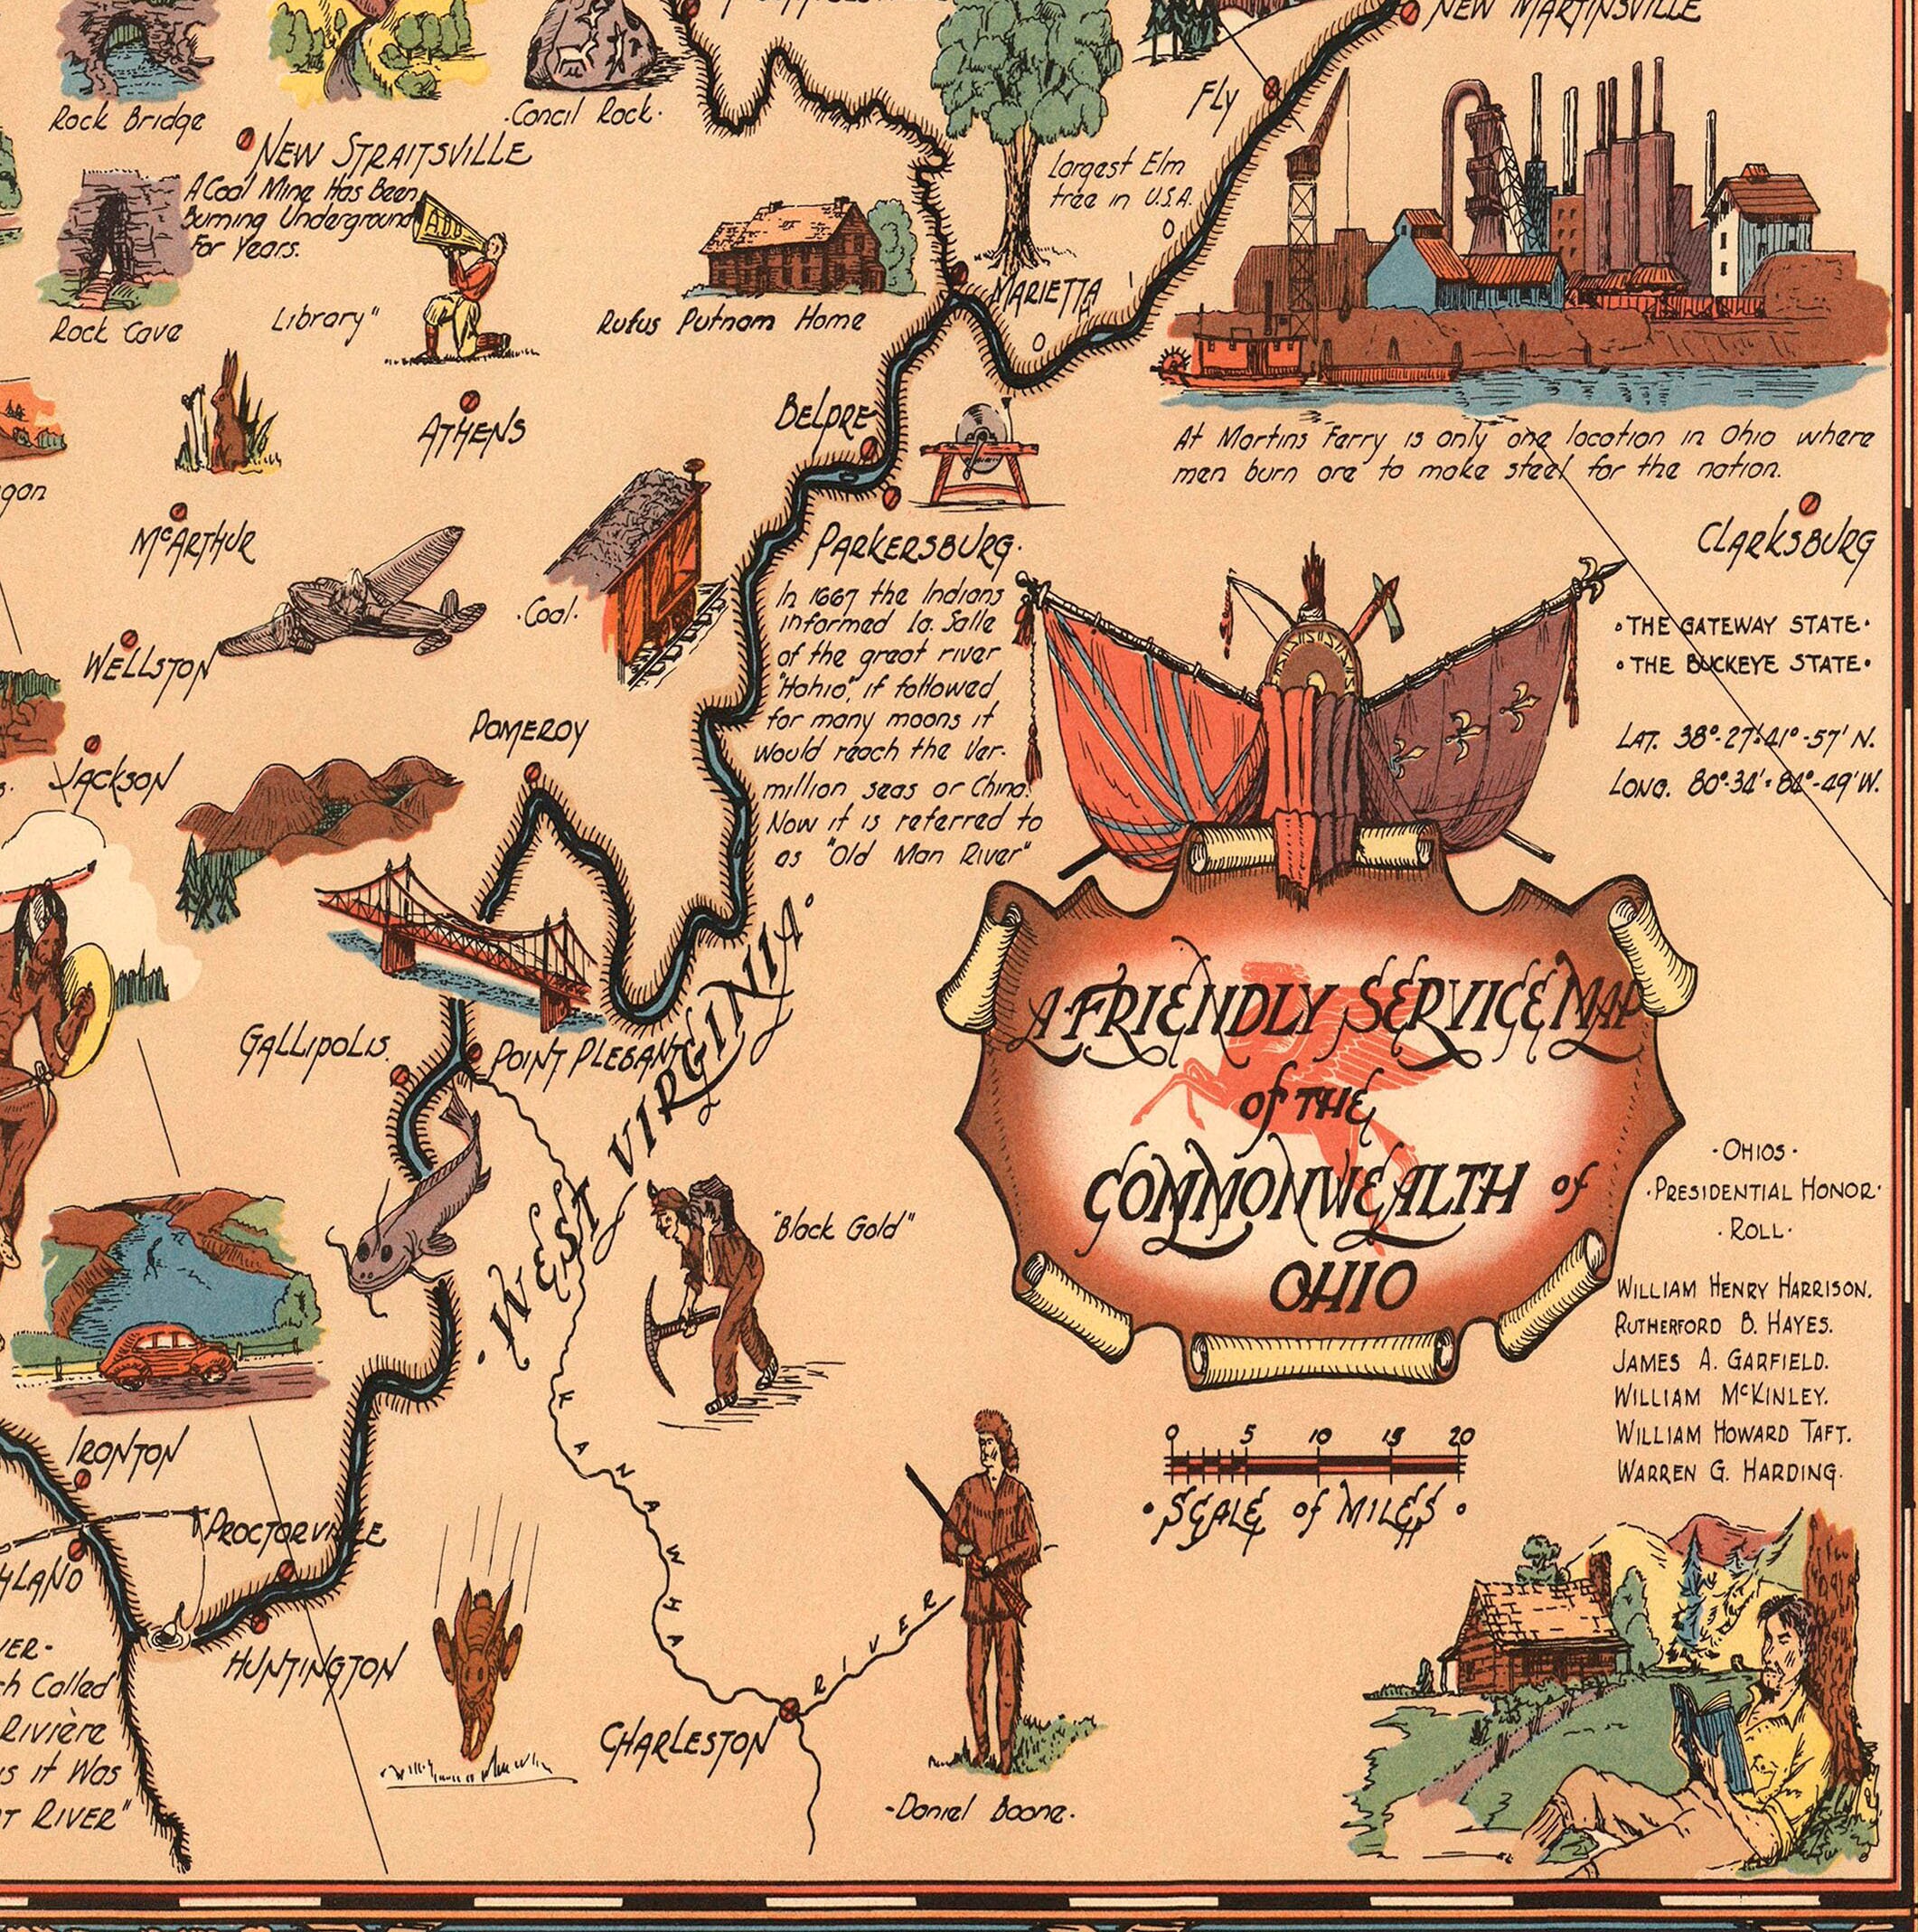 NEW MARTINSVILLE
Rock Bridge
·Concil Rock·
Fly
NEW STRAITSVILLE
A Coal Mine Has Been
Burning Underground
For Years.
Largest Elm
tree in U.S.A.
Rock Cave
Library"
Rufus Putnam Home
MARIETTA
O
H
I
O
ATHENS
BELPRE
At Martins Ferry is only one location in Ohio where
men burn ore to make steel for the nation.
McARTHUR
PARKERSBURG·
CLARKSBURG
·Coal·
In 1667 the Indians
informed La. Salle
of the great river
"Hohio", if followed
for many moons it
would reach the Ver-
million seas or China.
Now it is referred to
as "Old Man River"
WELLSTON
°THE GATEWAY STATE·
°THE BUCKEYE STATE·
POMEROY
LAT. 38°-27'-41°-57' N.
LONG. 80°-34'-84°-49' W.
JACKSON
A FRIENDLY SERVICE MAP
of THE
COMMONWEALTH of
OHIO
GALLIPOLIS.
POINT PLEASANT
·WEST VIRGINIA·
·OHIOS·
·PRESIDENTIAL HONOR·
·ROLL·
"Black Gold"
WILLIAM HENRY HARRISON.
RUTHERFORD B. HAYES.
JAMES A. GARFIELD.
WILLIAM McKINLEY.
WILLIAM HOWARD TAFT.
WARREN G. HARDING.
IRONTON
0 5 10 15 20
·SCALE of MILES·
PROCTORVILLE
KANAWHA RIVER
HUNTINGTON
ch Called
Rivière
as it Was
RIVER"
CHARLESTON
-Daniel Boone.